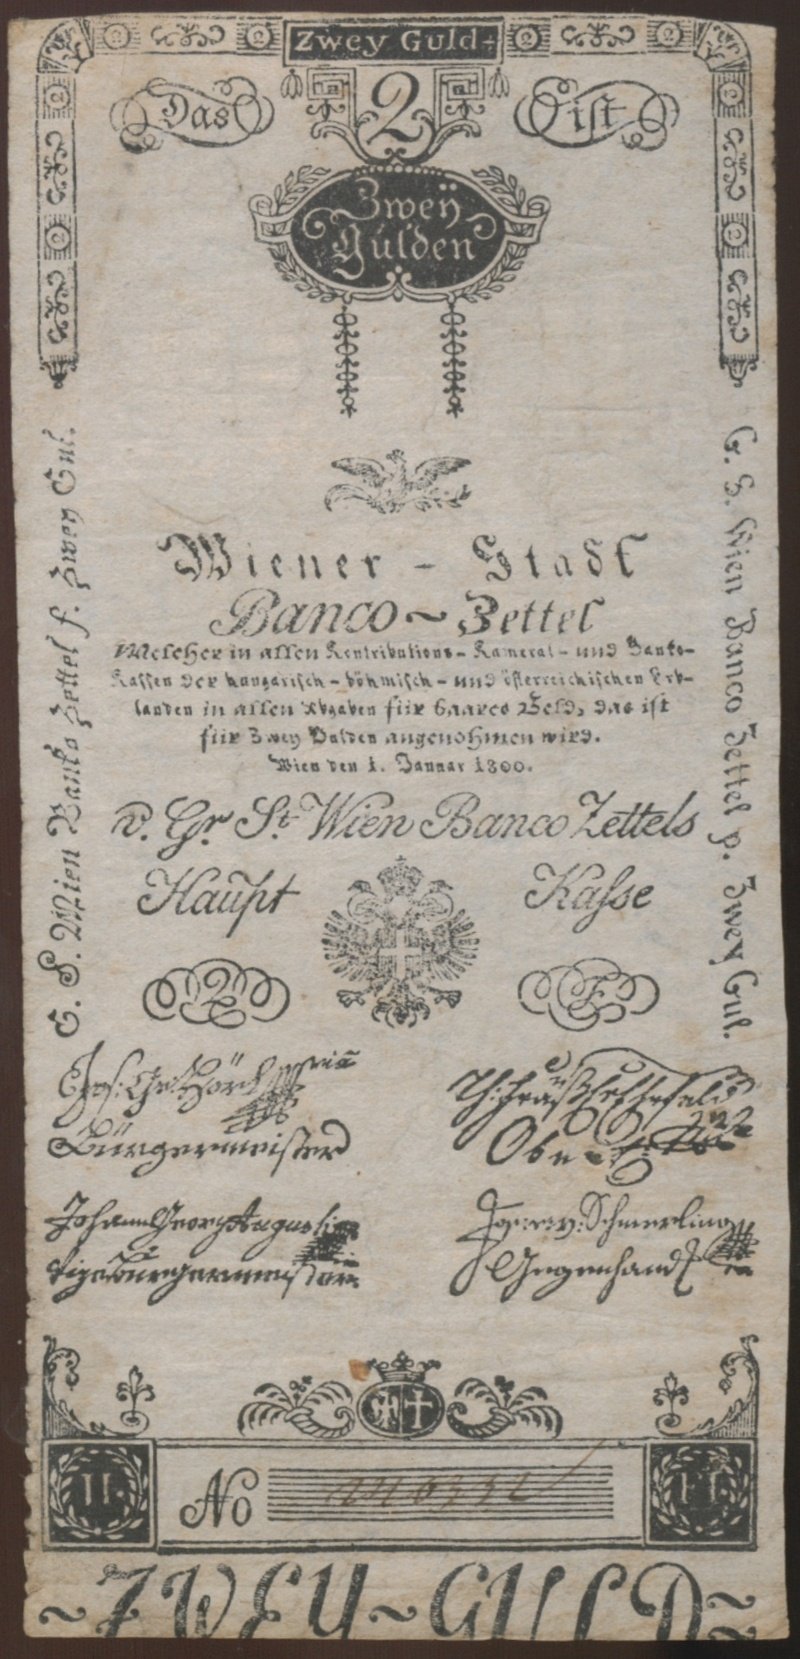 Zwey Guld÷
Das 2 ist
Zweÿ
Gulden
Wiener - Stadt
Banco ~ Zettel
Welcher in allen Kontributions - Kameral - und Banko-
Kassen der hungarisch - böhmisch - und österreichischen Erb-
landen in allen Abgaben für baares Geld, das ist
für Zwey Gulden angenohmen wird.
Wien den 1. Jannar 1800.
v. Gr. St. Wien Banco Zettels
Haupt Kasse
2 F
Bürgermeister
Johann Georg Augusti
v: Schmerling
Gegenhand
II. No II.
~ ZWEY ~ GULD ~
G. S. Wien Banko Zettel f. Zwey Gul.
G. S. Wien Banco Zettel p. Zwey Gul.